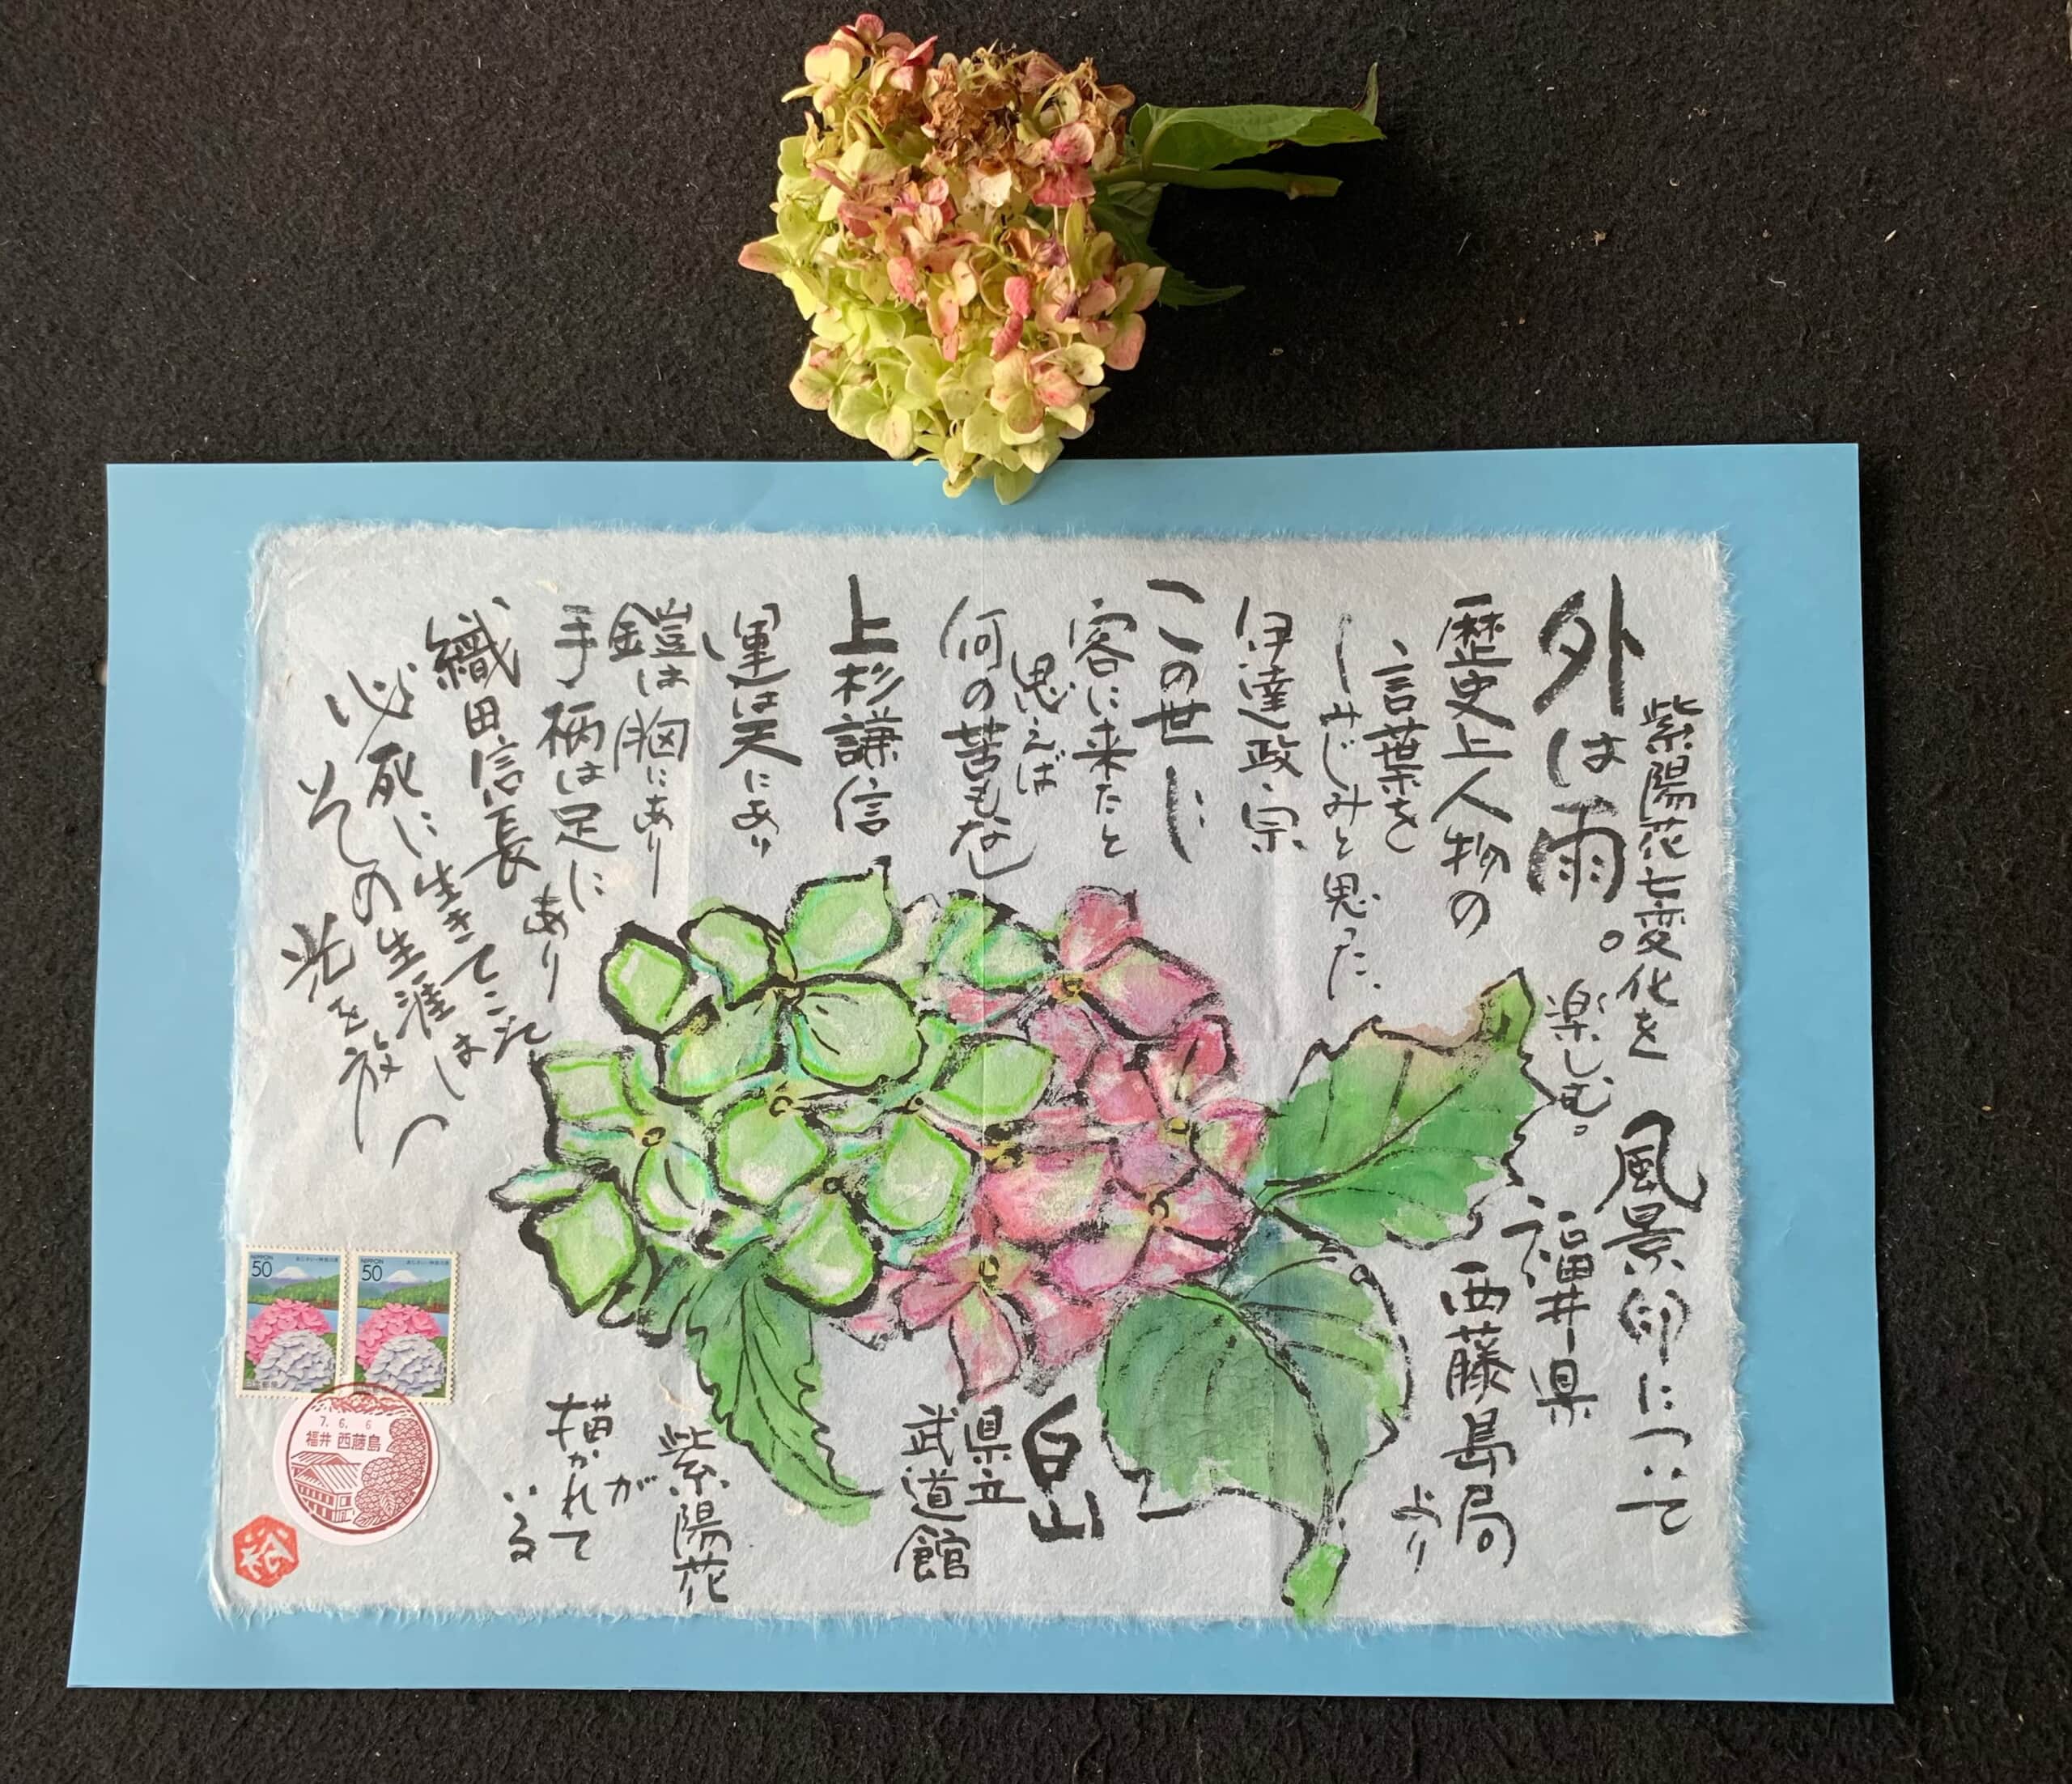 紫陽花七変化を
楽しむ。
外は雨。
歴史上人物の
言葉を
しみじみと思った。
伊達政宗
この世に
客に来たと
思えば
何の苦もなし
上杉謙信
運は天にあり
鎧は胸にあり
手柄は足に
あり
織田信長
必死に生きてこそ
その生涯は
光を放つ
風景印について
福井県
西藤島局
より
白山
県立
武道館
紫陽花
が
描かれて
いる
NIPPON
50
あじさい・神奈川県
NIPPON
50
あじさい・神奈川県
7. 6. 6
福井 西藤島